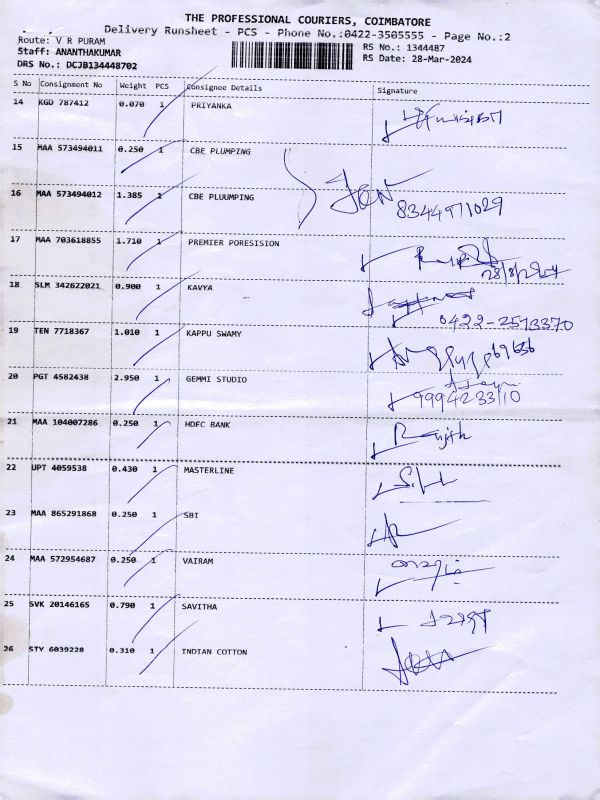 THE PROFESSIONAL COURIERS, COIMBATORE
Delivery Runsheet - PCS - Phone No.:0422-3505555 - Page No.:2
Route: V R PURAM
Staff: ANANTHAKUMAR
DRS No.: DCJB134448702
RS No.: 1344487
RS Date: 28-Mar-2024
S No Consignment No Weight PCS Consignee Details Signature
14 KGD 787412 0.070 1 PRIYANKA
15 MAA 573494011 0.250 1 CBE PLUMPING
16 MAA 573494012 1.385 1 CBE PLUUMPING 8344971029
17 MAA 703618855 1.710 1 PREMIER PORESISION
18 SLM 342622021 0.900 1 KAVYA 0422-2513370
19 TEN 7718367 1.010 1 KAPPU SWAMY
20 PGT 4582438 2.950 1 GEMMI STUDIO 9994233110
21 MAA 104007286 0.250 1 HDFC BANK Ranjith
22 UPT 4059538 0.430 1 MASTERLINE
23 MAA 865291868 0.250 1 SBI
24 MAA 572954687 0.250 1 VAIRAM
25 SVK 20146165 0.790 1 SAVITHA
26 STY 6039228 0.310 1 INDIAN COTTON